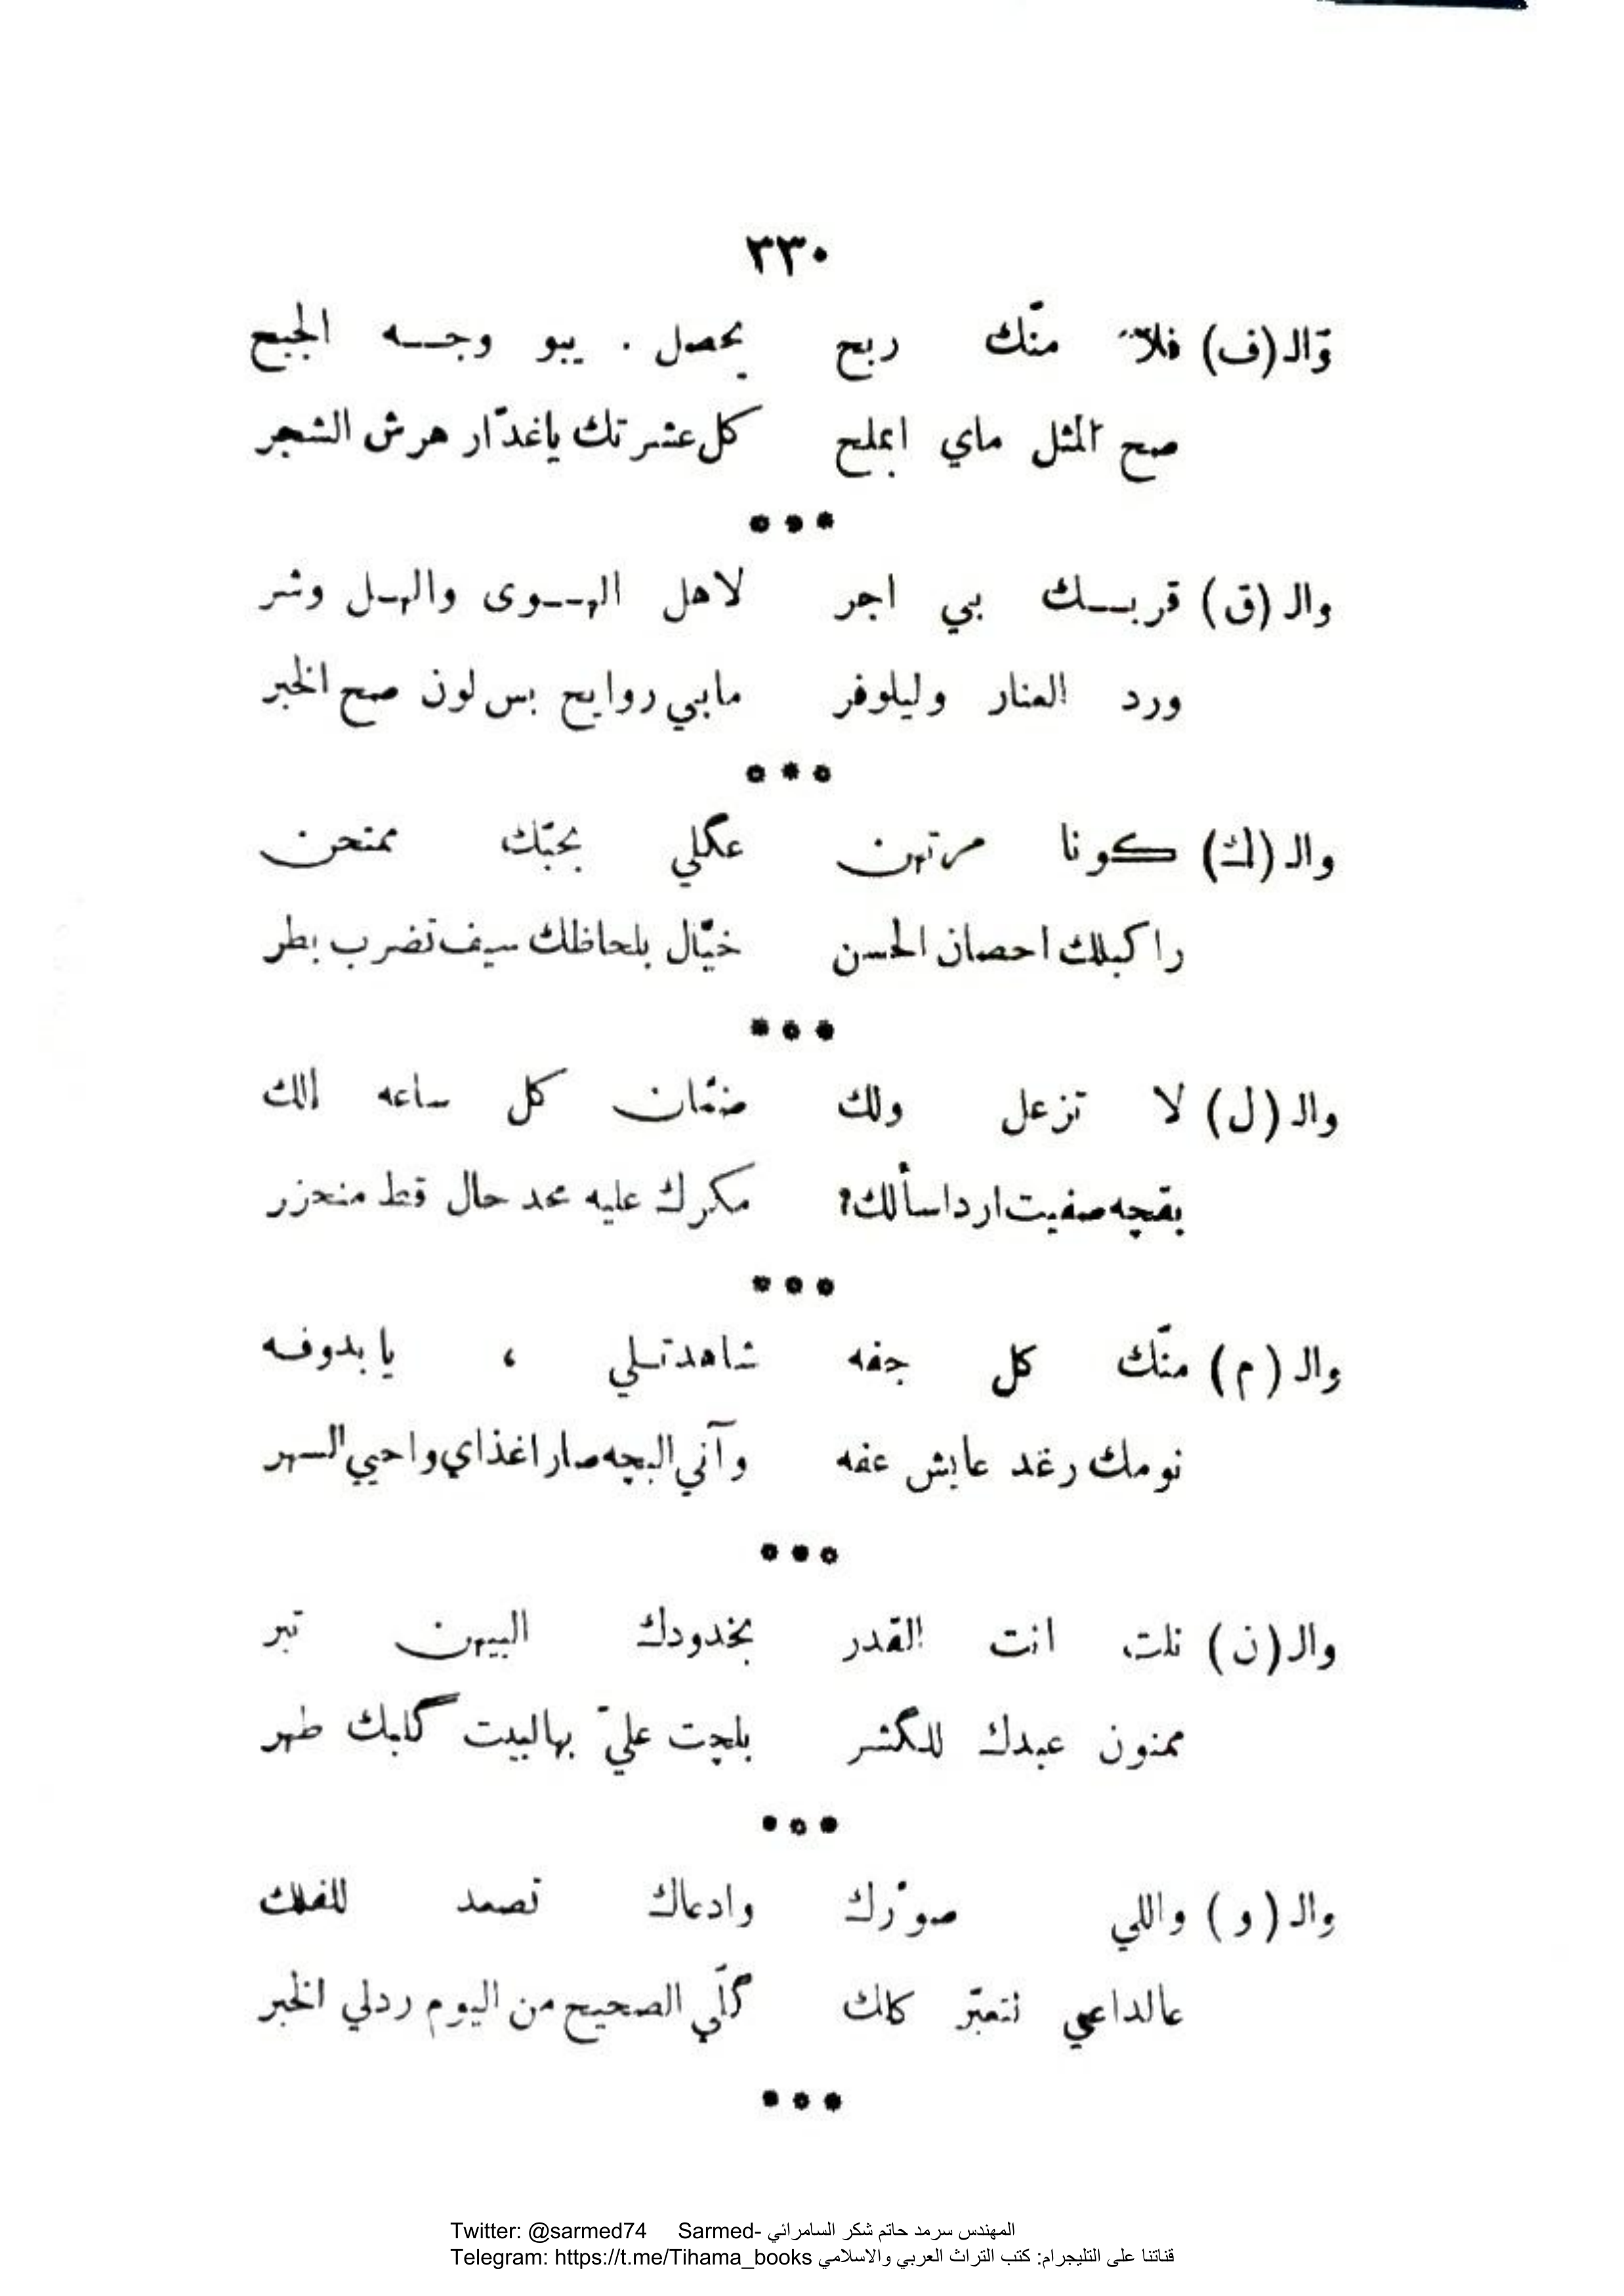 ٣٣٠
وال (ف) فلا منّك ربح يحصل . يبو وجـــه الجبح
صح المثل ماي ابملح كل عشرتك ياغدّار هرش الشجر
***
وال (ق) قربـــك بي اجر لاهل الهـــوى والهـل وشر
ورد العنار وليلوفر مابي روايح بس لون صح الخبر
***
وال (ك) كونا مرتين عگلي بحبّك ممتحن
راكبلك احصان الحسن خيّال بلحاظك سيف تضرب بطر
***
وال (ل) لا تزعل ولك ضمّان كل ساعه الك
بقچه صفيت ارد اسألك؟ مكرك عليه محد حال قط منحزر
***
وال (م) منّك كل جفه شاهدتلي ، يابدوفه
نومك رغد عايش عفه وآني البچه صار اغذاي واحيي السهر
***
وال (ن) نلت انت القدر بخدودك البيهن تبر
ممنون عبدك للگشر بلچت عليّ بهالبيت گلبك طهر
***
وال (و) واللي صوّرك وادعاك تصعد للفلك
عالداعي نتعبّر كلك گلّي الصحيح من اليوم ردلي الخبر
***
Twitter: @sarmed74 Sarmed- المهندس سرمد حاتم شكر السامرائي
Telegram: https://t.me/Tihama_books قناتنا على التليجرام: كتب التراث العربي والاسلامي